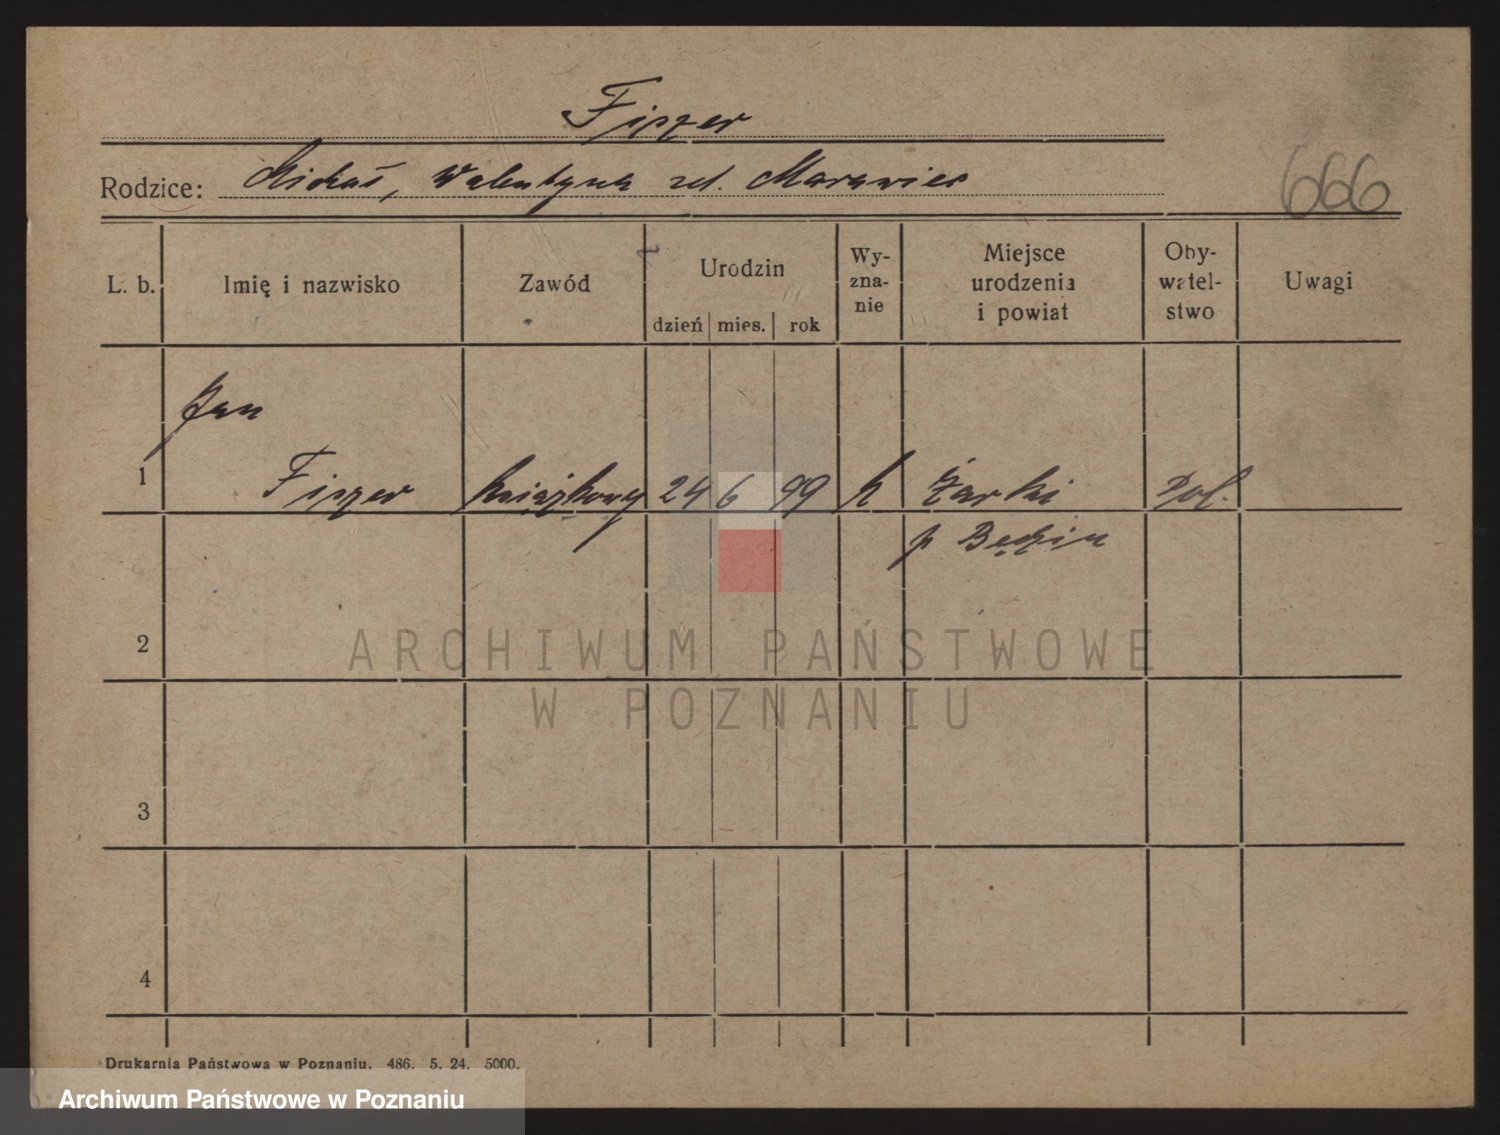 Fiszer
Rodzice: Michał, Walentyna zd. Marawiec
666
L. b. Imię i nazwisko Zawód Urodzin dzień mies. rok Wy-zna-nie Miejsce urodzenia i powiat Oby-watel-stwo Uwagi
Jan
1 Fiszer książkowy 24 6 99 k Żarki Pol.
p Będzin
2
ARCHIWUM PAŃSTWOWE
W POZNANIU
3
4
Drukarnia Państwowa w Poznaniu. 486. 5. 24. 5000.
Archiwum Państwowe w Poznaniu